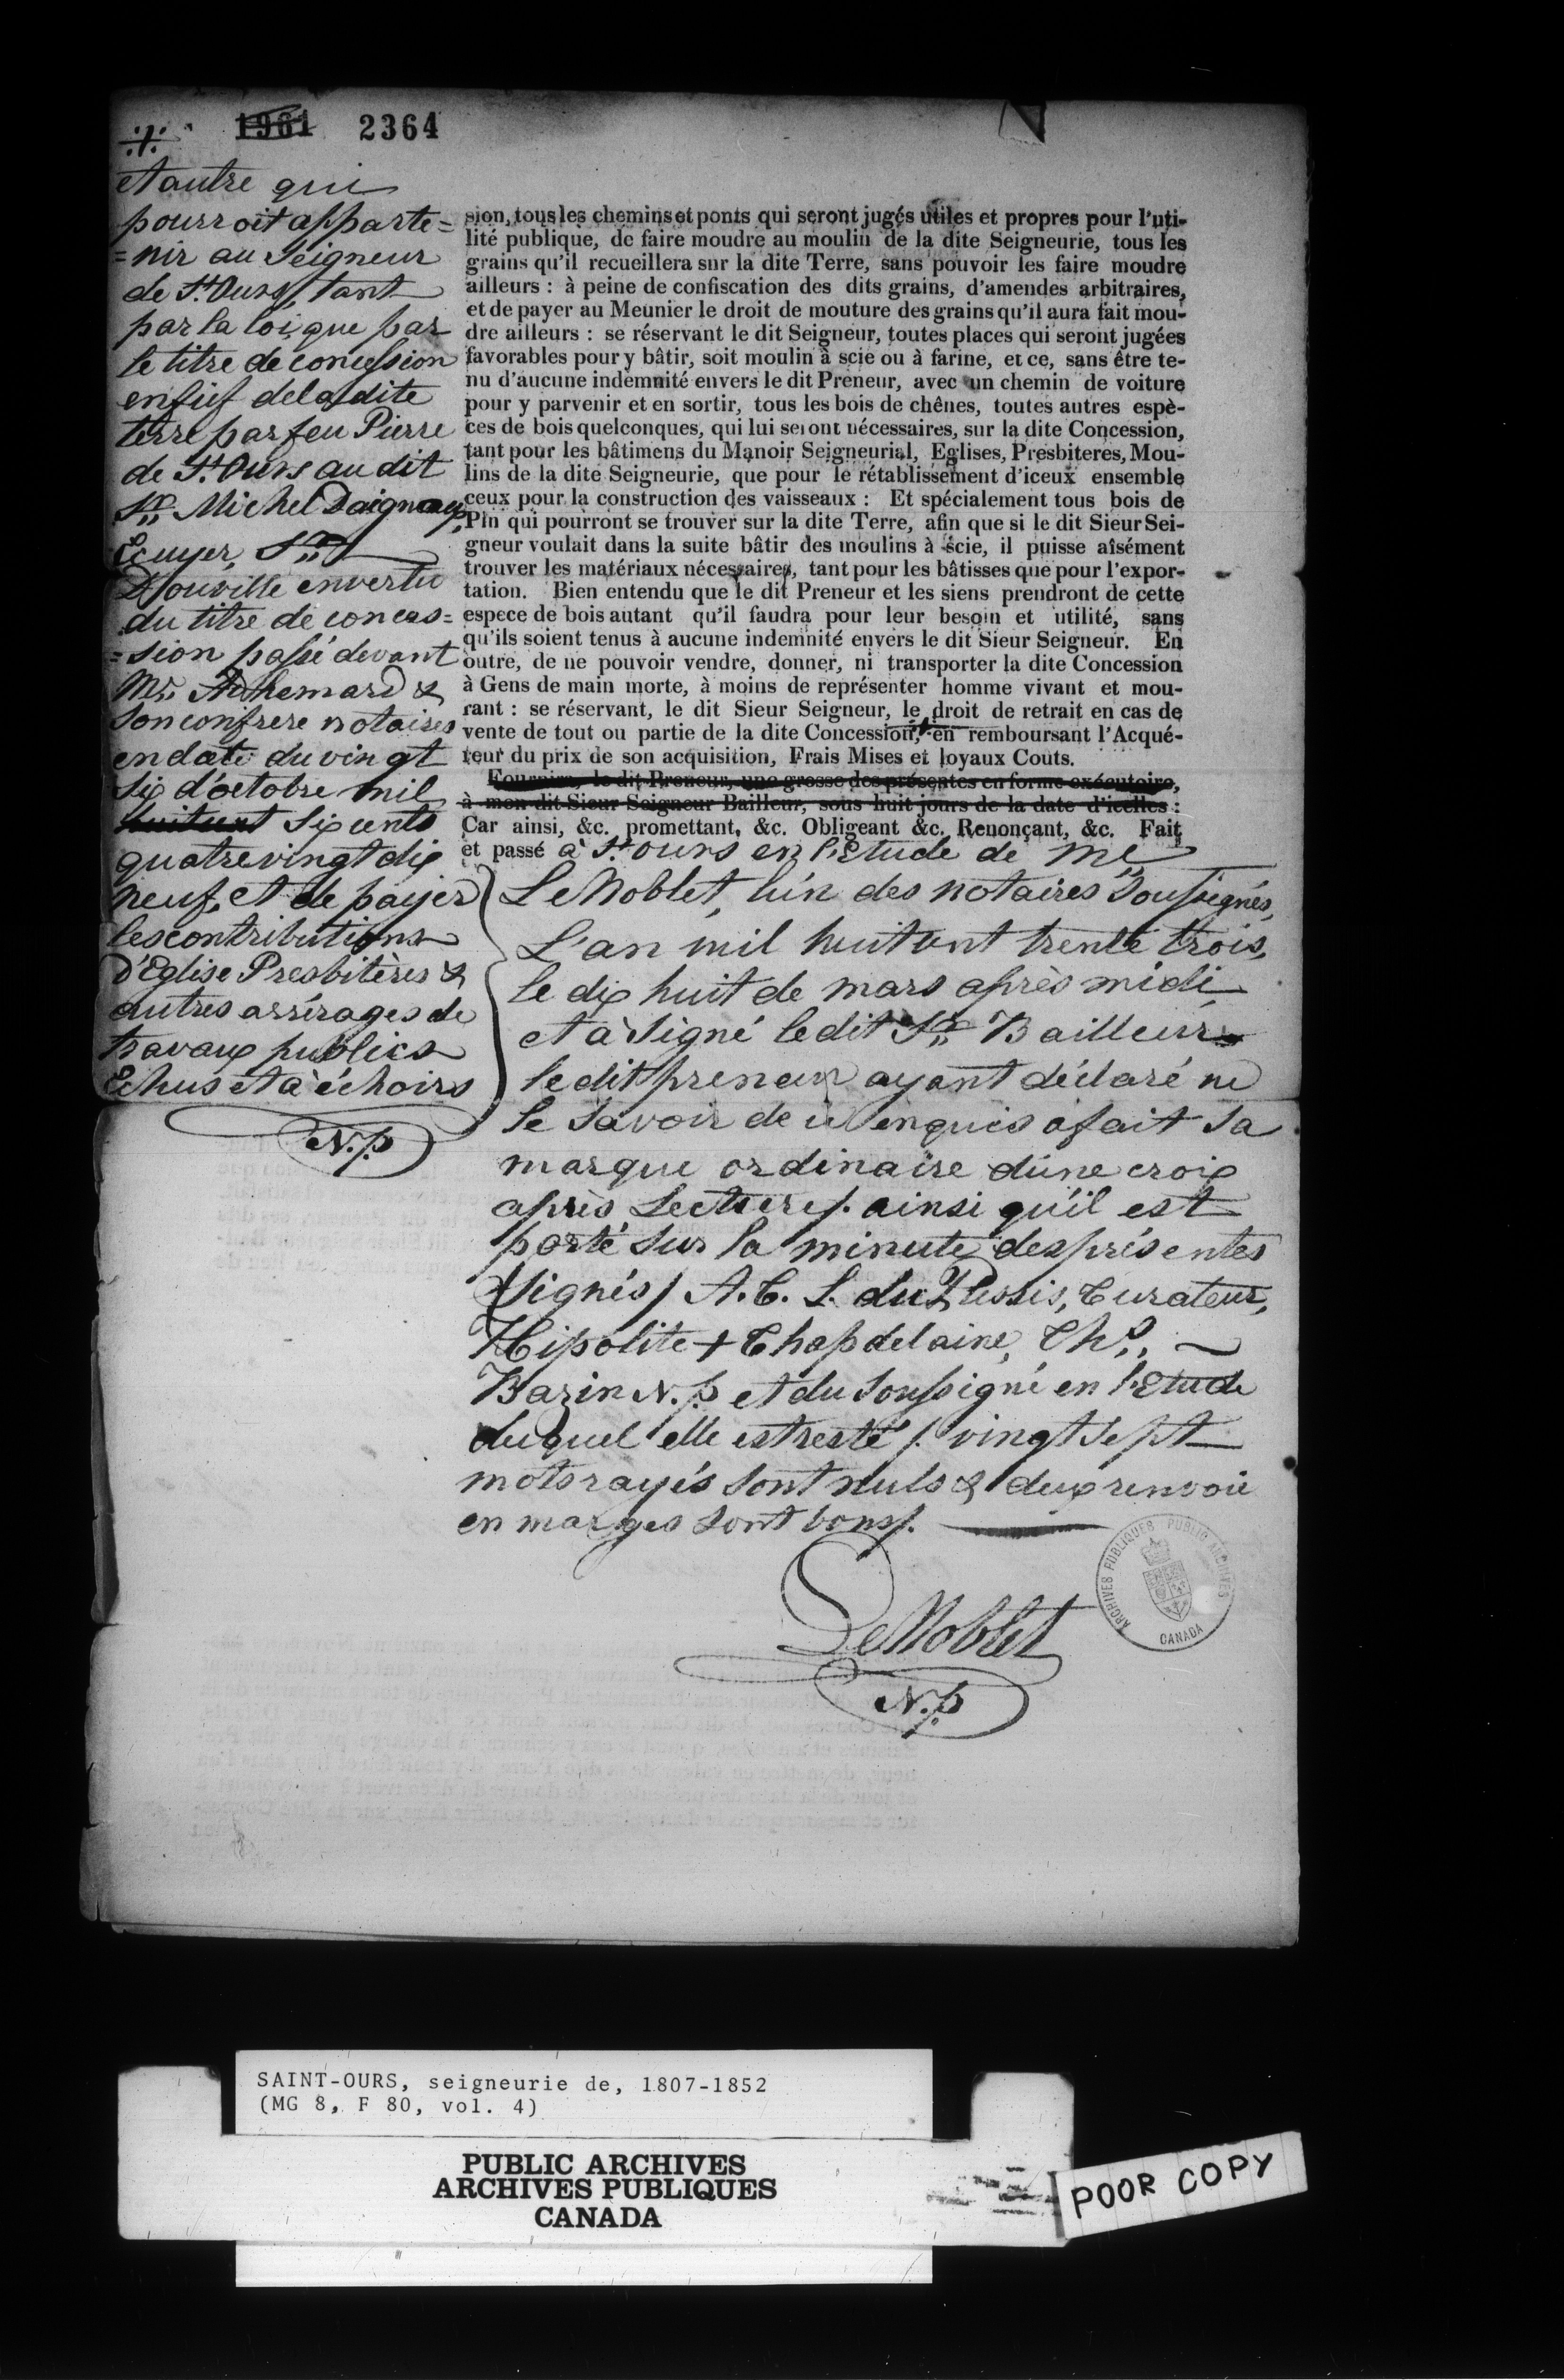 ./. 1961 2364
et autre qui
pourroit apparte=
=nir au Seigneur
de St Ours, tant
par la loi, que par
le titre de concession
en fief de la dite
terre par feu Pierre
de St. Ours au dit
Sr. Michel Daigneaux,
Ecuyer, Sr.
D'ouville en vertu
du titre de conces=
=sion passé devant
Mr. Adhemard &
Son confrere notaires
en date du vingt
six d'octobre mil
huit cent six cents
quatre vingt dix
neuf, et de payer
les contributions
d'Eglise Presbitères &
autres arrérages de
travaux publics
Echus et à échoirs
N.p
sion, tous les chemins et ponts qui seront jugés utiles et propres pour l'uti-
lité publique, de faire moudre au moulin de la dite Seigneurie, tous les
grains qu'il recueillera sur la dite Terre, sans pouvoir les faire moudre
ailleurs : à peine de confiscation des dits grains, d'amendes arbitraires,
et de payer au Meunier le droit de mouture des grains qu'il aura fait mou-
dre ailleurs : se réservant le dit Seigneur, toutes places qui seront jugées
favorables pour y bâtir, soit moulin à scie ou à farine, et ce, sans être te-
nu d'aucune indemnité envers le dit Preneur, avec un chemin de voiture
pour y parvenir et en sortir, tous les bois de chênes, toutes autres espè-
ces de bois quelconques, qui lui seront nécessaires, sur la dite Concession,
tant pour les bâtimens du Manoir Seigneurial, Eglises, Presbiteres, Mou-
lins de la dite Seigneurie, que pour le rétablissement d'iceux ensemble
ceux pour la construction des vaisseaux : Et spécialement tous bois de
Pin qui pourront se trouver sur la dite Terre, afin que si le dit Sieur Sei-
gneur voulait dans la suite bâtir des moulins à scie, il puisse aîsément
trouver les matériaux nécessaires, tant pour les bâtisses que pour l'expor-
tation. Bien entendu que le dit Preneur et les siens prendront de cette
espece de bois autant qu'il faudra pour leur besoin et utilité, sans
qu'ils soient tenus à aucune indemnité envers le dit Sieur Seigneur. En
outre, de ne pouvoir vendre, donner, ni transporter la dite Concession
à Gens de main morte, à moins de représenter homme vivant et mou-
rant : se réservant, le dit Sieur Seigneur, le droit de retrait en cas de
vente de tout ou partie de la dite Concession, en remboursant l'Acqué-
reur du prix de son acquisition, Frais Mises et loyaux Couts.
Fournira, le dit Preneur, une grosse des présentes en forme exécutoire,
à mon dit Sieur Seigneur Bailleur, sous huit jours de la date d'icelles :
Car ainsi, &c. promettant, &c. Obligeant &c. Renonçant, &c. Fait
et passé à St. Ours en l'Etude de Me
LeNoblet, l'un des notaires Soussignés,
L'an mil huit cent trente trois,
le dix huit de mars après midi,
et a signé le dit Sr. Bailleur
le dit preneur ayant déclaré ne
le savoir de ce enquis a fait sa
marque ordinaire d'une croix
après Lecture ./. ainsi qu'il est
porté sur la minute des présentes
(Signés) A. C. L. duPlessis, Curateur,
Hipolite + Chapdelaine, Chs.
Bazin N.p et du Soussigné en l'Etude
duquel elle est restée ./. vingt sept
mots rayés sont nuls & deux renvois
en marges sont bons ./.
LeNoblet
N.p
ARCHIVES PUBLIQUES PUBLIC ARCHIVES
CANADA
SAINT-OURS, seigneurie de, 1807-1852
(MG 8, F 80, vol. 4)
PUBLIC ARCHIVES
ARCHIVES PUBLIQUES
CANADA
POOR COPY